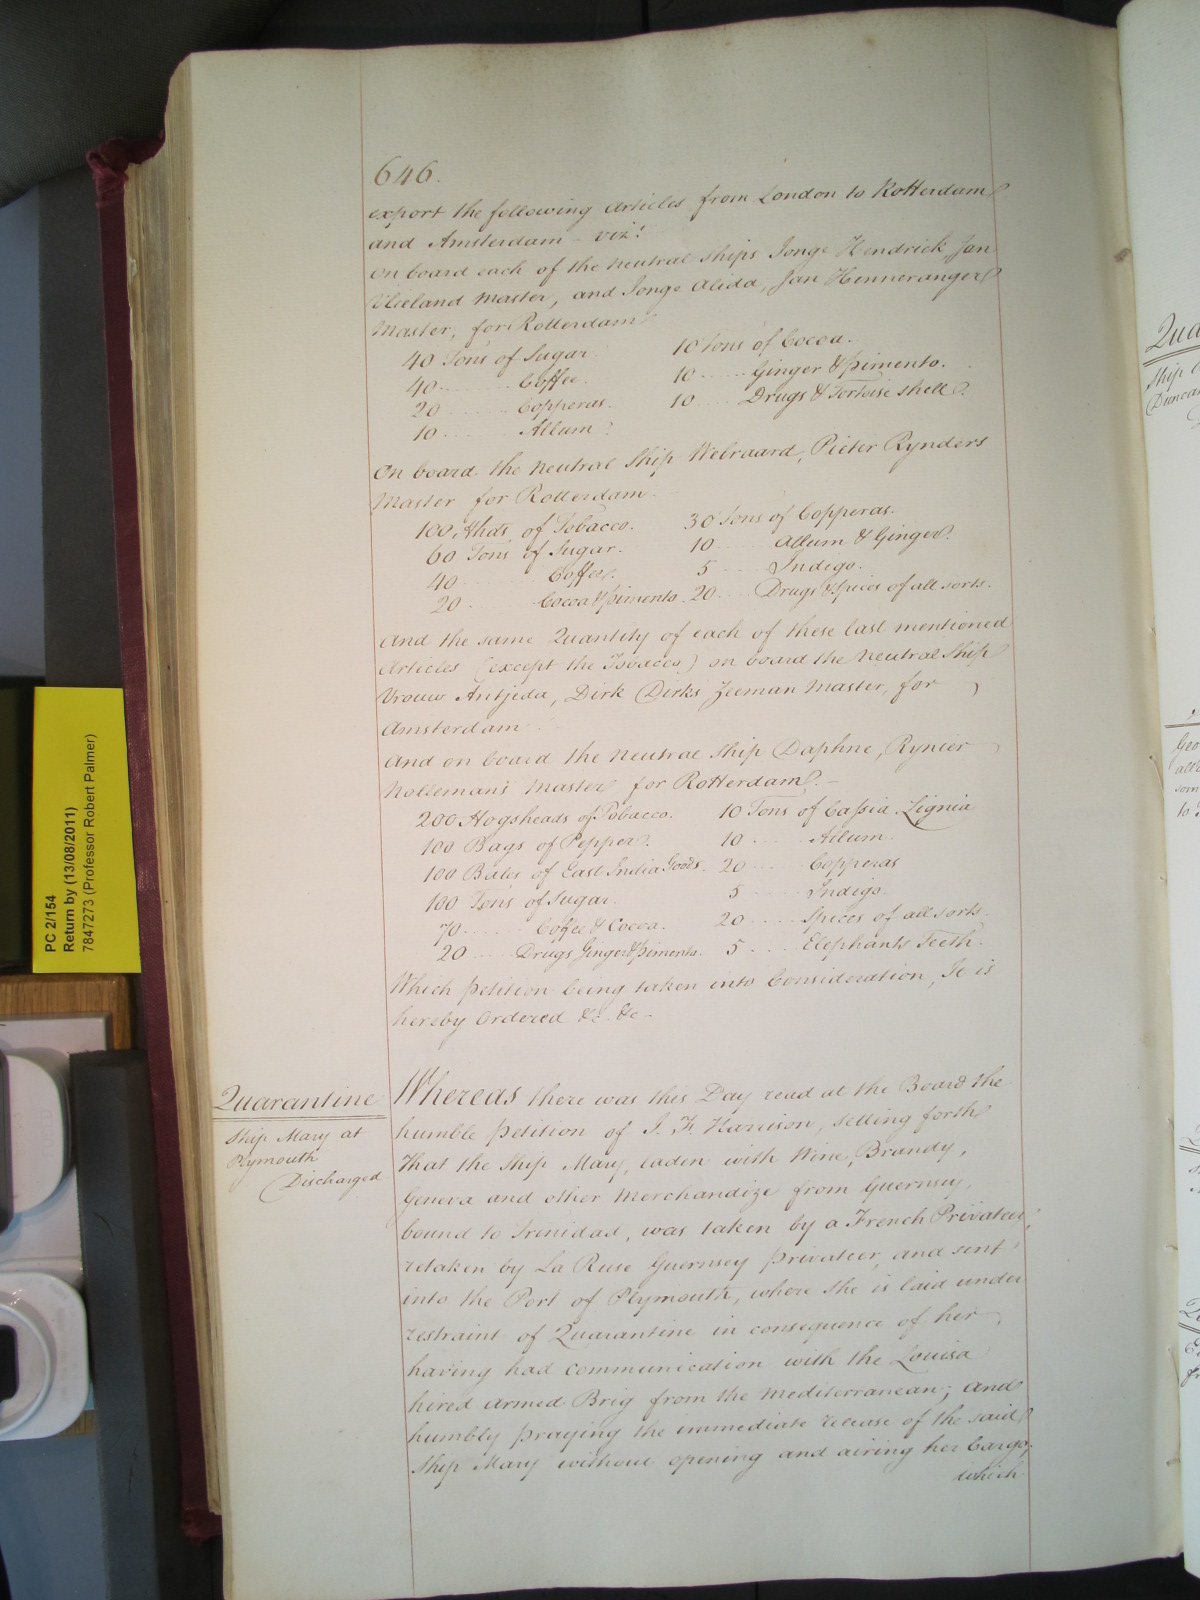 646.
export the following Articles from London to Rotterdam
and Amsterdam - vizt
On board each of the neutral ships Jonge Hendrick, Jan
Vlieland Master, and Jonge Alida, Jan Henneranger
Master, for Rotterdam
40 Tons of Sugar. 10 Tons of Cocoa.
40 ...... Coffee. 10 ..... Ginger & Pimento.
20 ...... Copperas. 10 ..... Drugs & Tortoise shell.
10 ...... Allum.
On board the neutral Ship Webraard, Pieter Rynders
Master for Rotterdam.
100 Hhds. of Tobacco. 30 Tons of Copperas.
60 Tons of Sugar. 10 ..... Allum & Ginger.
40 ...... Coffee. 5 ..... Indigo.
20 ...... Cocoa & Pimento. 20 ..... Drugs & Spices of all sorts.
And the same Quantity of each of these last mentioned
Articles (except the Tobacco) on board the neutral Ship
Vrouw Antjeda, Dirk Dirks Zeeman Master, for
Amsterdam
And on board the neutral Ship Daphne, Rynier
Nollemans Master for Rotterdam. -
200 Hogsheads of Tobacco. 10 Tons of Cassia Lignia
100 Bags of Pepper. 10 ..... Allum.
100 Bales of East India Goods. 20 ..... Copperas
100 Tons of Sugar. 5 ..... Indigo.
70 ...... Coffee & Cocoa. 20 ..... Spices of all sorts.
20 ..... Drugs Ginger & Pimento. 5 ..... Elephants Teeth.
Which Petition being taken into Consideration, It is
hereby Ordered &c. &c -
Quarantine
Ship Mary at
Plymouth
Discharged
Whereas there was this Day read at the Board the
humble Petition of J. F. Harrison, setting forth
That the Ship Mary, laden with Wine, Brandy,
Geneva and other Merchandize from Guernsey,
bound to Trinidad, was taken by a French Privateer,
retaken by La Ruse Guernsey Privateer, and sent
into the Port of Plymouth, where she is laid under
restraint of Quarantine in consequence of her
having had communication with the Louisa
hired armed Brig from the Mediterranean; and
humbly praying the immediate release of the said
Ship Mary without opening and airing her Cargo;
which
PC 2/154
Return by (13/08/2011)
7847273 (Professor Robert Palmer)